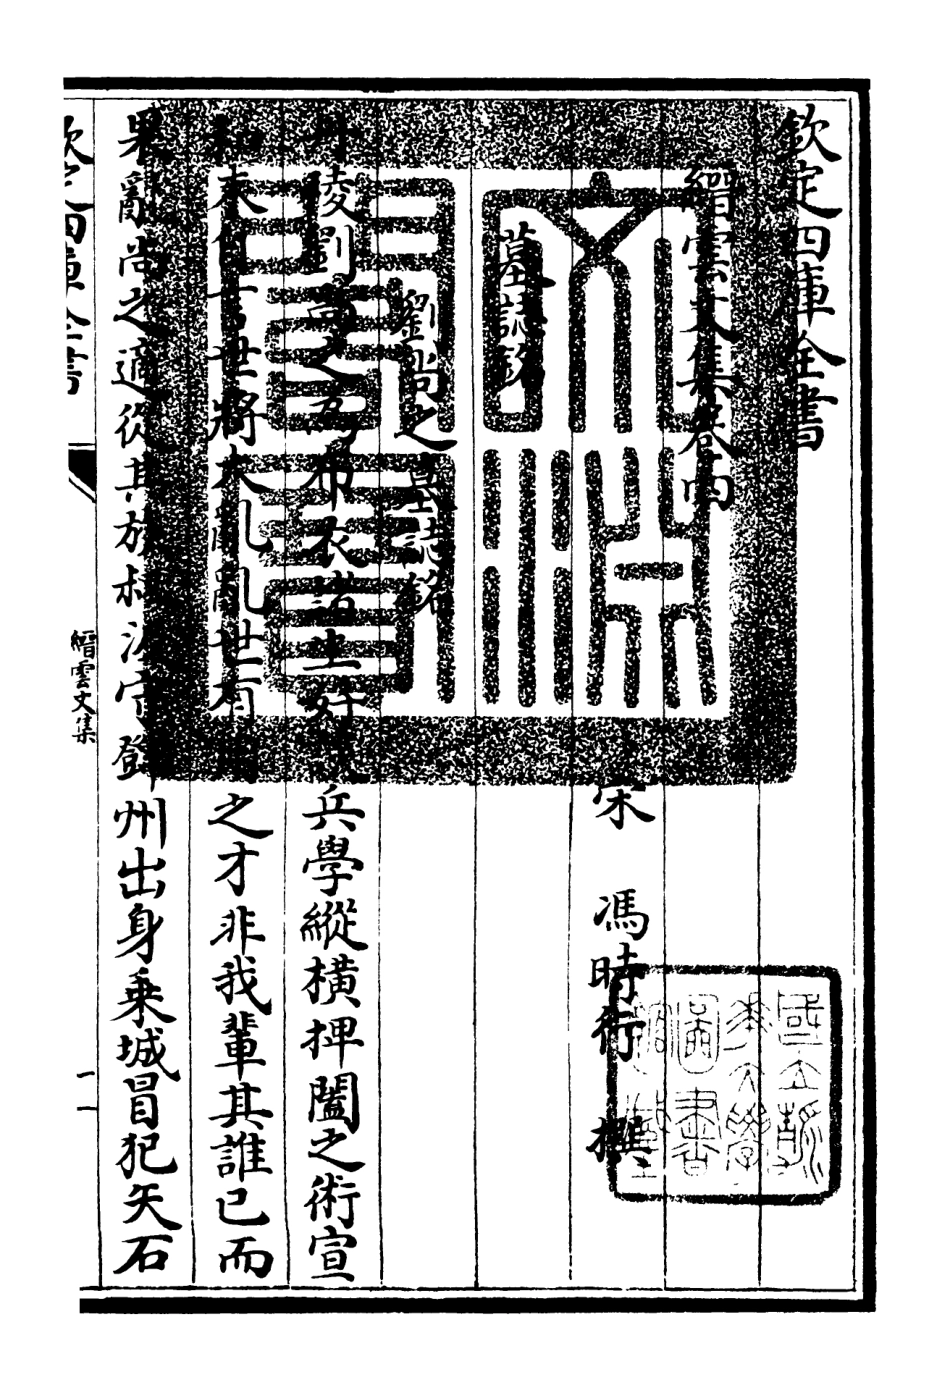 欽定四庫全書
縉雲文集卷四
宋 馮時行 撰
墓誌銘
劉尚之墓誌銘
丹陵劉尚之為布衣諸生好談兵學縱橫捭闔之術宣
和末嘗言世將大亂亂世有用之才非我輩其誰已而
果亂尚之適從其族叔汲守鄧州出身乘城冒犯矢石
欽定四庫全書
縉雲文集
一
國立
大學
圖書